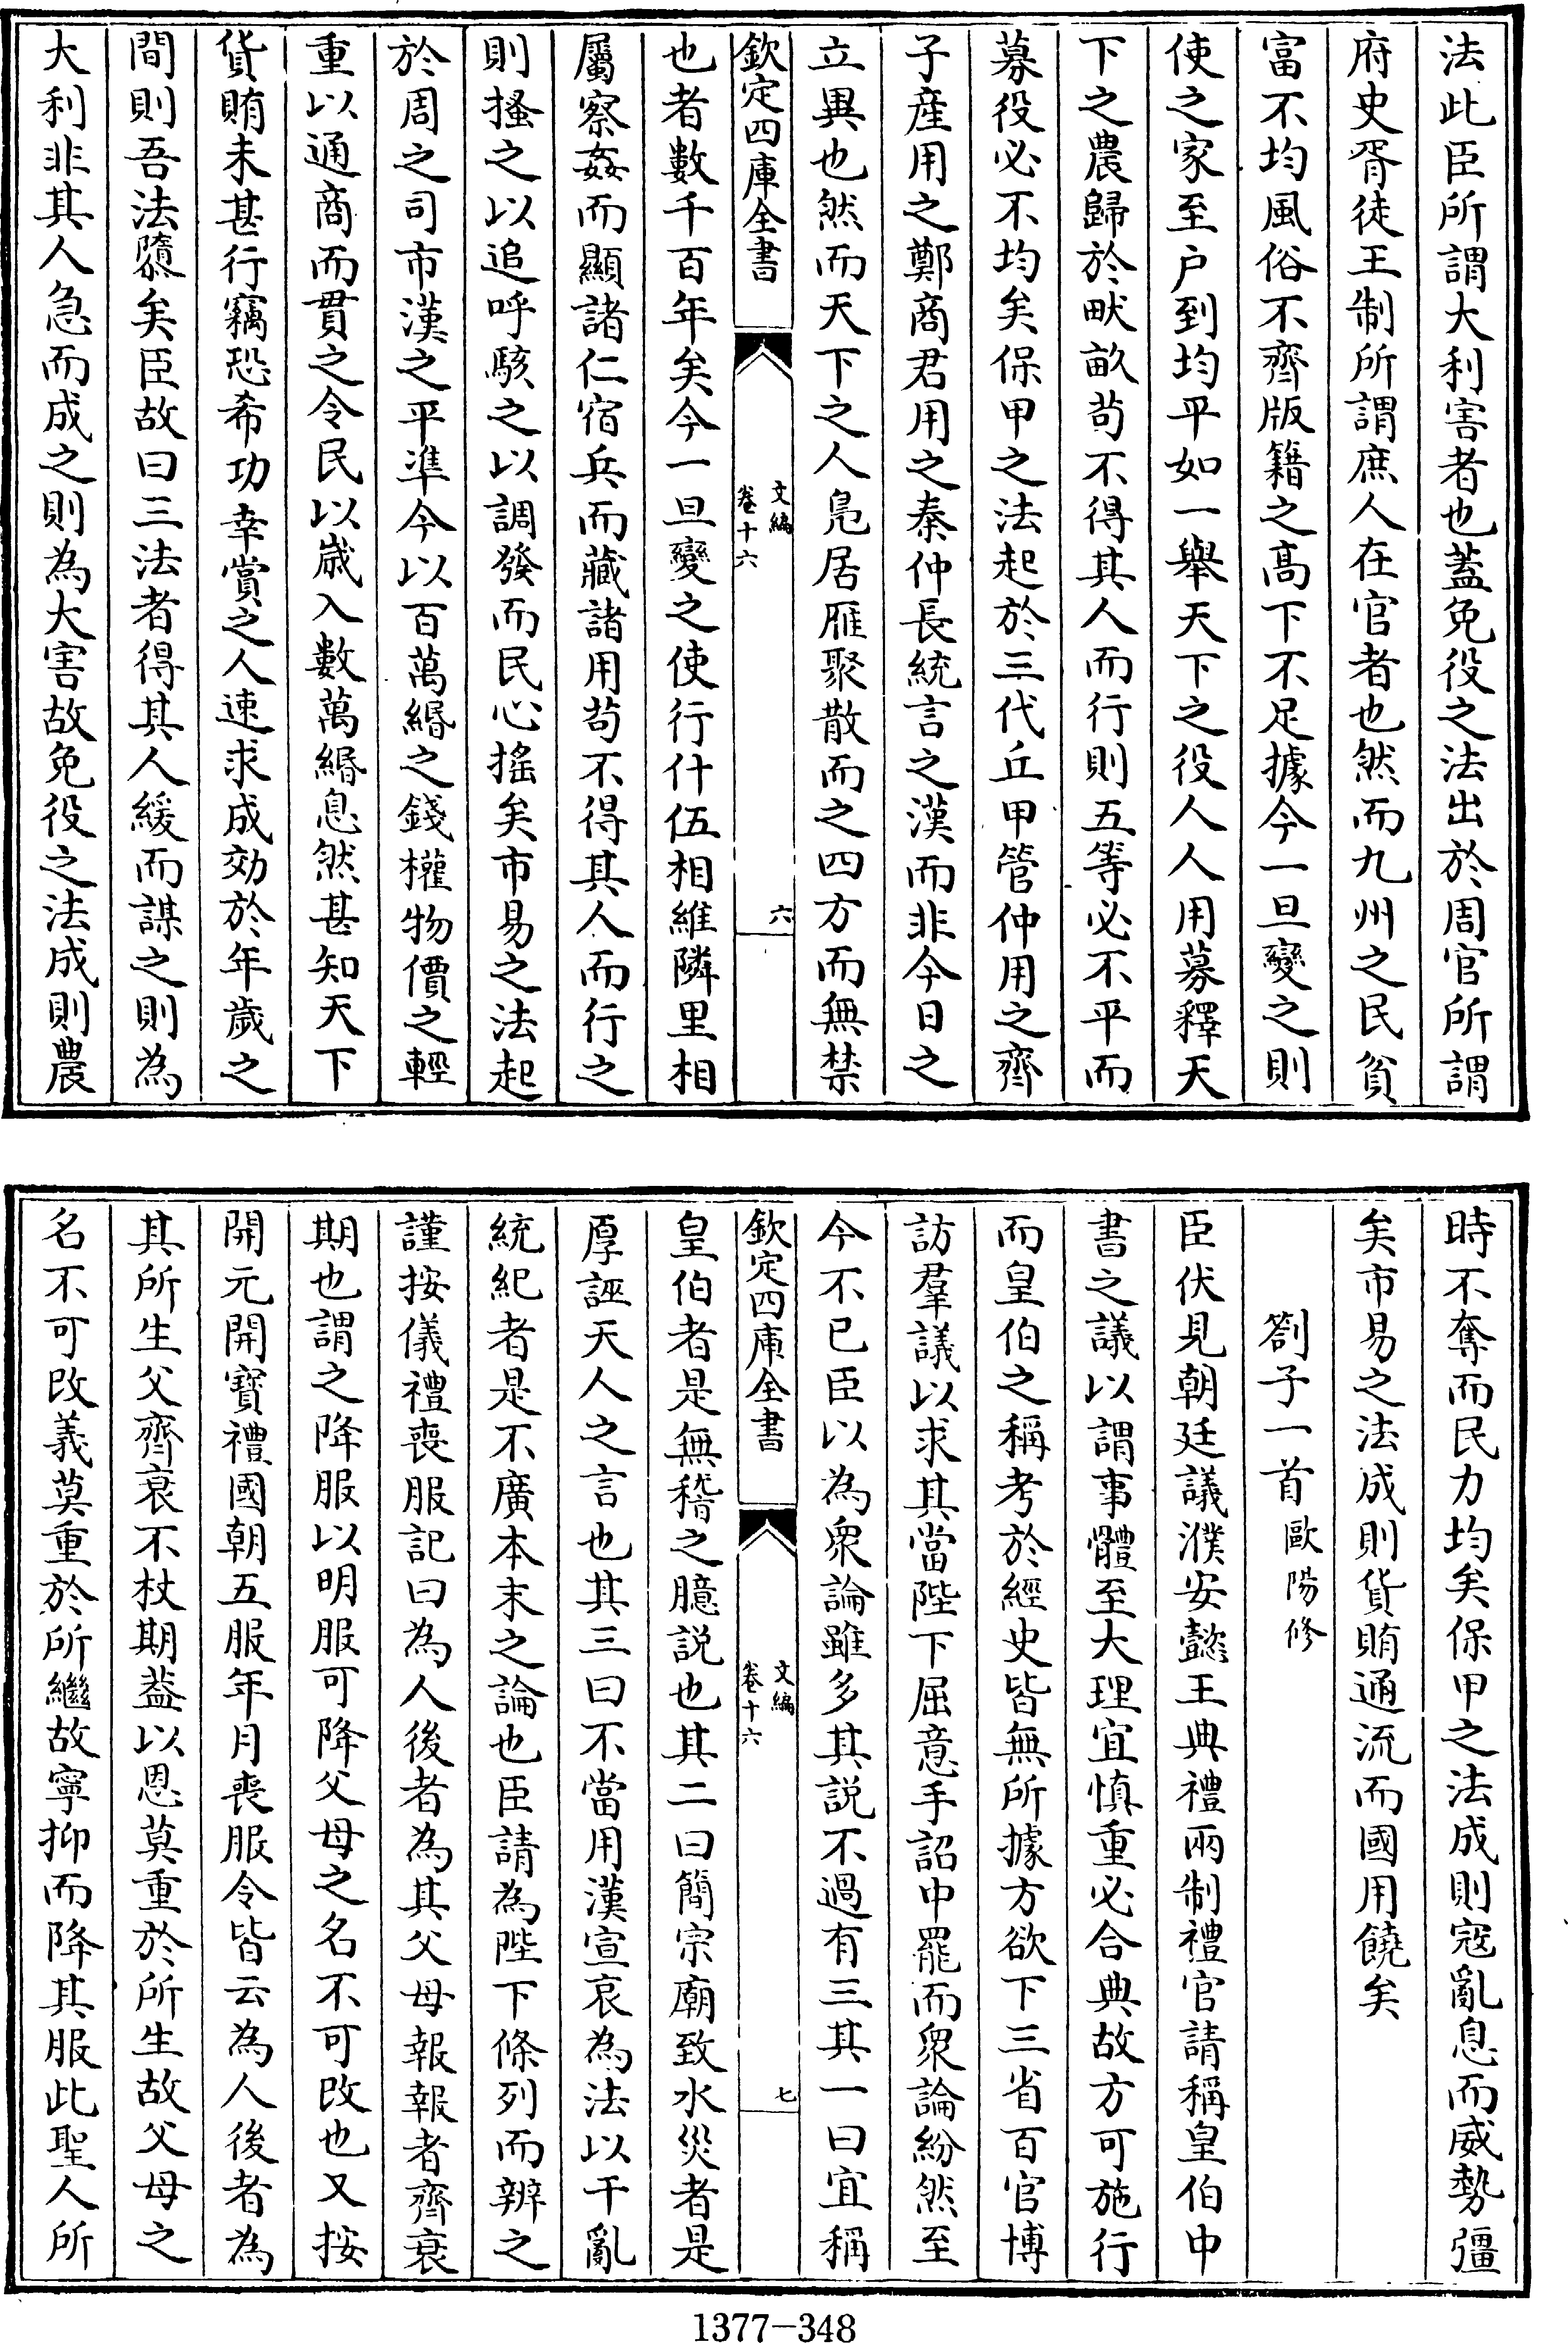 法此臣所謂大利害者也蓋免役之法出於周官所謂
府史胥徒王制所謂庶人在官者也然而九州之民貧
富不均風俗不齊版籍之髙下不足據今一旦變之則
使之家至户到均平如一舉天下之役人人用募釋天
下之農歸於畎畝茍不得其人而行則五等必不平而
募役必不均矣保甲之法起於三代丘甲管仲用之齊
子産用之鄭商君用之秦仲長統言之漢而非今日之
立異也然而天下之人鳬居雁聚散而之四方而無禁
欽定四庫全書
文編
卷十六
六
也者數千百年矣今一旦變之使行什伍相維隣里相
屬察姦而顯諸仁宿兵而藏諸用茍不得其人而行之
則搔之以追呼駭之以調發而民心搖矣市易之法起
於周之司市漢之平凖今以百萬緡之錢權物價之輕
重以通商而貫之令民以嵗入數萬緡息然甚知天下
貨賄未甚行竊恐希功幸賞之人速求成効於年歲之
間則吾法隳矣臣故曰三法者得其人緩而謀之則為
大利非其人急而成之則為大害故免役之法成則農
時不奪而民力均矣保甲之法成則寇亂息而威勢彊
矣市易之法成則貨賄通流而國用饒矣
劄子一首歐陽修
臣伏見朝廷議濮安懿王典禮兩制禮官請稱皇伯中
書之議以謂事體至大理宜慎重必合典故方可施行
而皇伯之稱考於經史皆無所據方欲下三省百官博
訪羣議以求其當陛下屈意手詔中罷而衆論紛然至
今不已臣以為衆論雖多其説不過有三其一曰宜稱
欽定四庫全書
文編
卷十六
七
皇伯者是無稽之臆説也其二曰簡宗廟致水災者是
厚誣天人之言也其三曰不當用漢宣哀為法以干亂
統紀者是不廣本末之論也臣請為陛下條列而辨之
謹按儀禮喪服記曰為人後者為其父母報報者齊衰
期也謂之降服以明服可降父母之名不可改也又按
開元開寶禮國朝五服年月喪服令皆云為人後者為
其所生父齊衰不杖期葢以恩莫重於所生故父母之
名不可改義莫重於所繼故寧抑而降其服此聖人所
1377-348